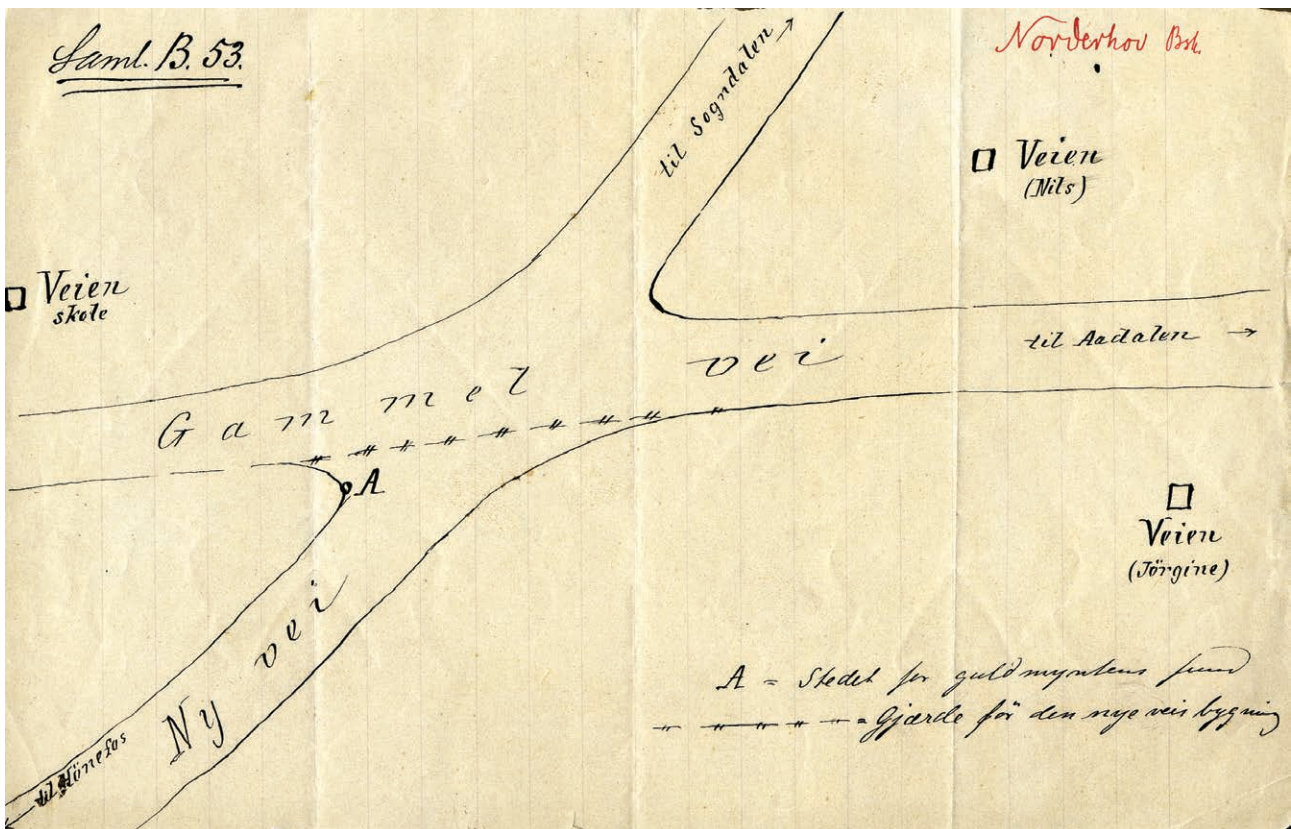 Saml. B. 53.
Norderhov Bsk.
til Sogndalen →
Veien
(Nils)
Veien
skole
til Aadalen →
Gammel vei
A
Veien
(Jörgine)
Ny vei
til Hönefos
A = Stedet for guldmyntens fund
= Gjærde för den nye veis bygning